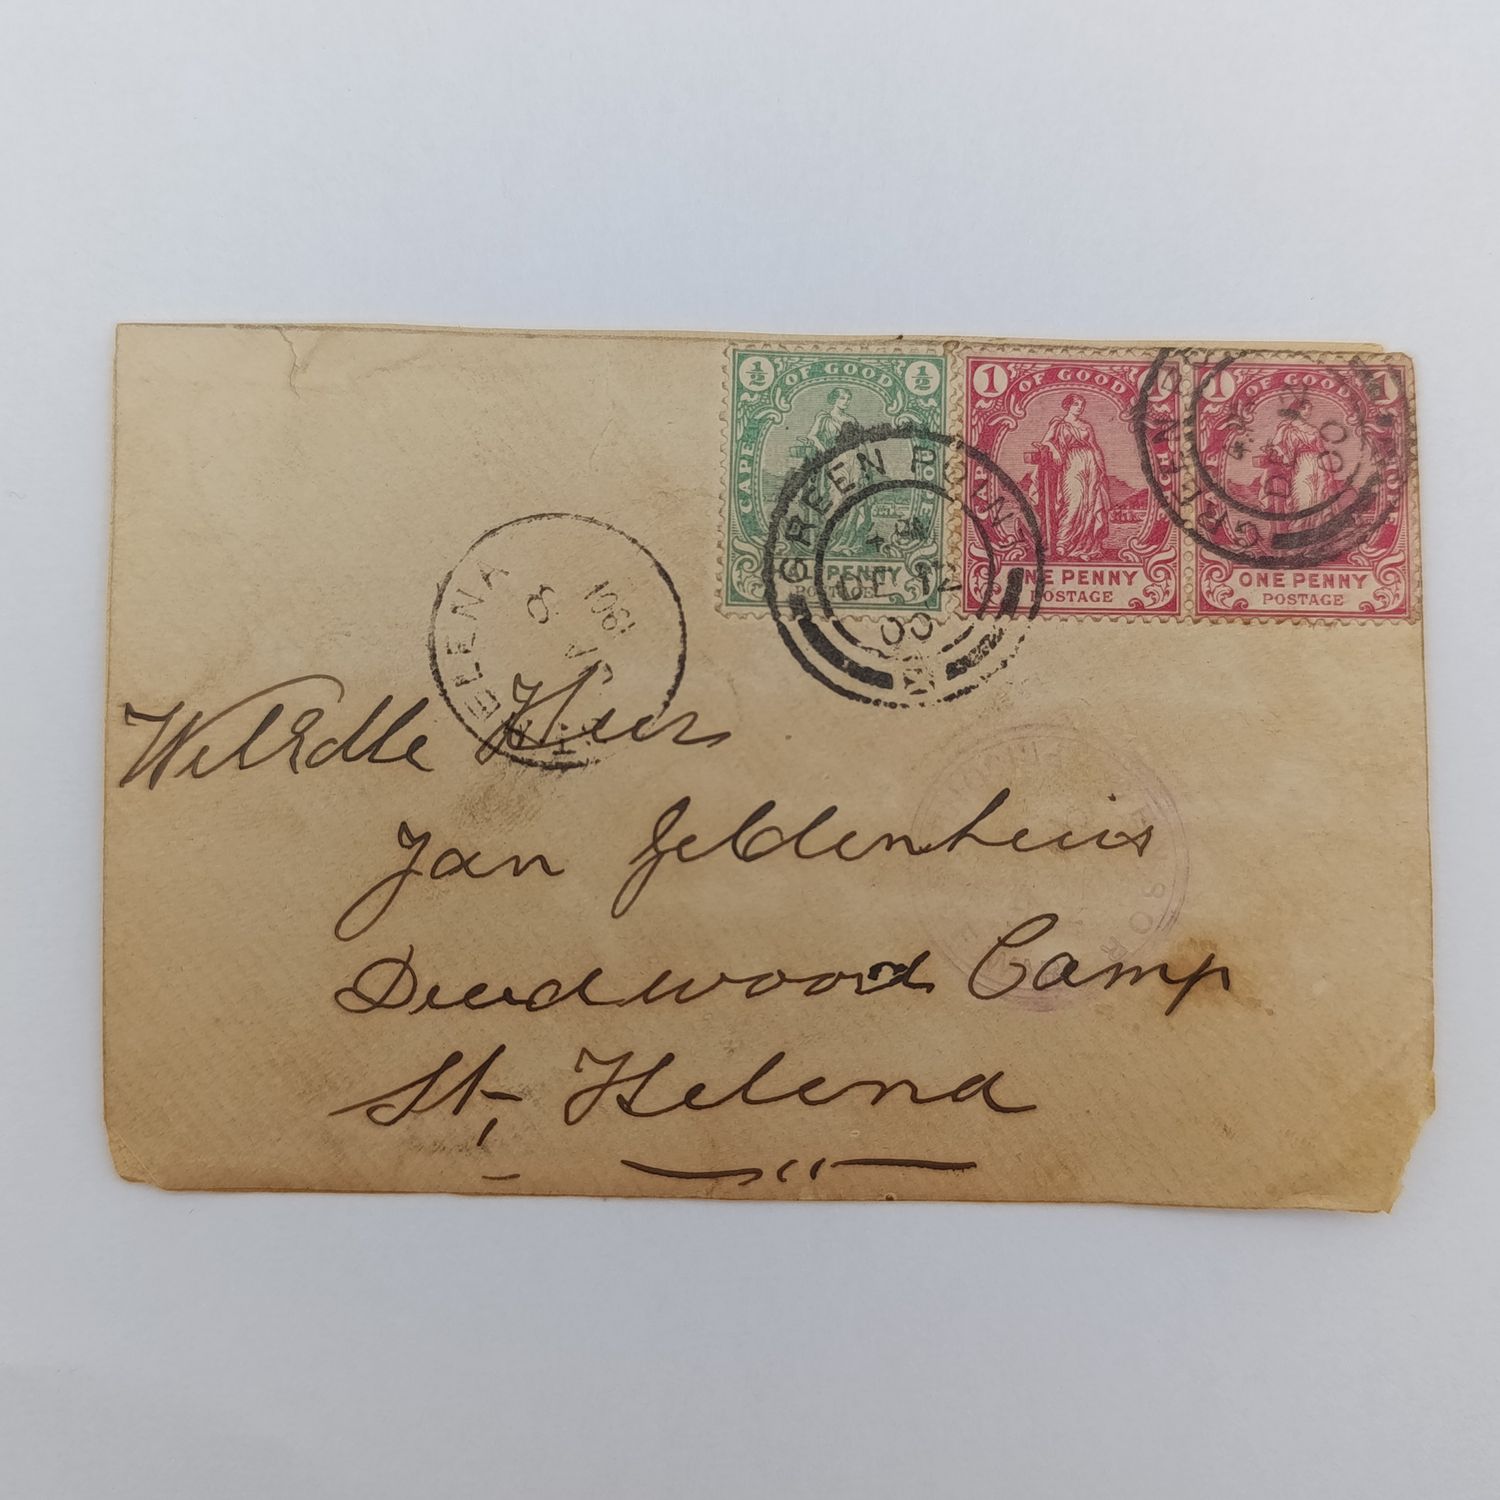 ½ OF GOOD ½
CAPE HOPE
PENNY
POSTAGE
1 OF GOOD
HOPE
ONE PENNY
POSTAGE
1 OF GOOD 1
HOPE
ONE PENNY
POSTAGE
GREEN POINT
DE 12
00
GREEN
DE
00
HELENA
JA
8
1901
WelEdle Heer
Jan Geldenhuis
Deadwood Camp
St. Helena